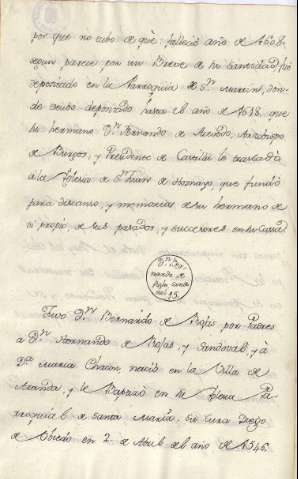 por que no cubo de què: fallecio año de 1608.
segun parece por un Breve de su santidad, fuè
depositado en la Parroquia de Sn. Martin, don-
de estubo depositado hasta el año de 1618, que
su hermano Dn. Fernando de Acebedo, Arzobispo
de Burgos, y Presidente de Castilla le trasladò
a la Iglesia de Sn. Juan de Hoznayo, que fundò
para descanso, y memorias de su hermano de
si propio, de sus pasados, y succesores en su Casa.
Dn. Ber-
nardo de
Rojas, carde-
nal 15.
Tuvo Dn. Bernardo de Rojas, por Padres
a Dn. Hernando de Rojas, y Sandoval, y à
Da. Maria Chacon, naciò en la Villa de
Aranda, y le Baptizò en la Iglesia Pa-
rroquial de Santa Maria, su Cura Diego
de Obiedo en 2 de Abril del año de 1546.